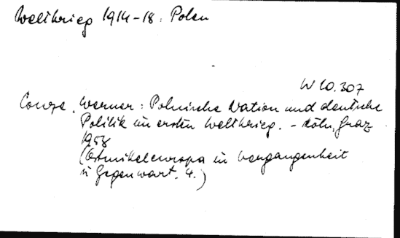 Weltkrieg 1914-18: Polen
W 10.307
Conze, Werner: Polnische Nation und deutsche
Politik im ersten Weltkrieg. - Köln, Graz
1958
(Ostmitteleuropa in Vergangenheit
u. Gegenwart. 4.)